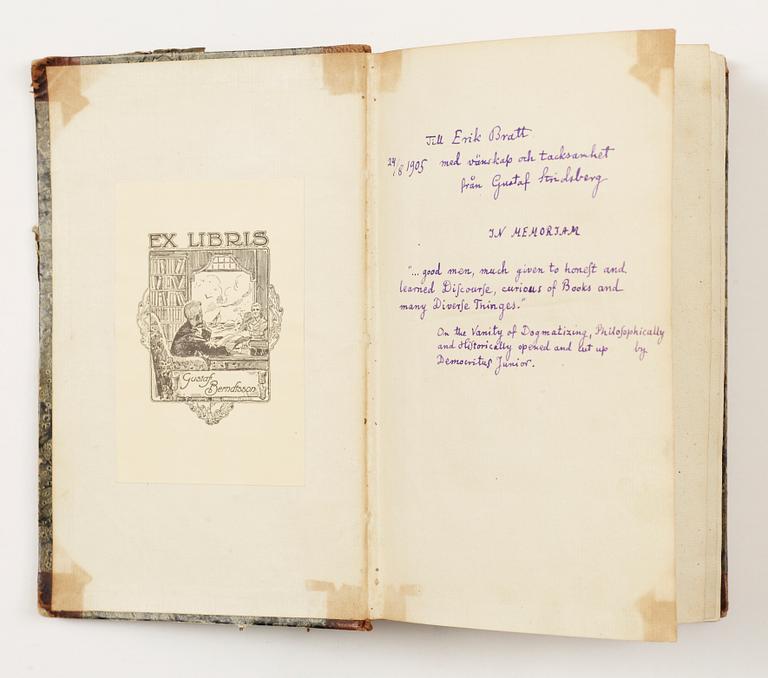 EX LIBRIS
Gustaf
Berndtsson
Till Erik Bratt
24/8 1905 med vänskap och tacksamhet
från Gustaf Stridsberg
IN MEMORIAM
"... good men, much given to honeſt and
learned Diſcourſe, curious of Books and
many Diverſe Thinges."
On the Vanity of Dogmatizing, Philoſophically
and Hiſtorically opened and cut up by
Democritus Junior.